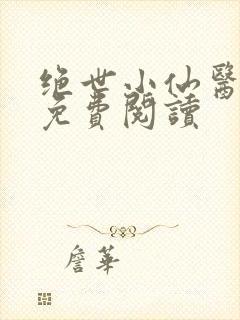 绝世小仙醫
免費閱讀
詹華